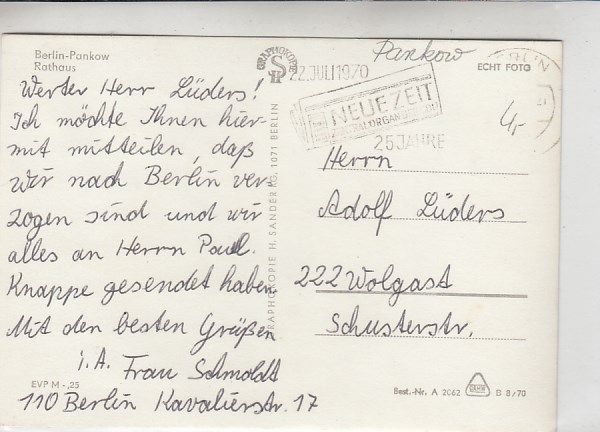 Berlin-Pankow
Rathaus
Werter Herr Lüders!
Ich möchte Ihnen hier-
mit mitteilen, daß
wir nach Berlin ver-
zogen sind und wir
alles an Herrn Paul
Knappe gesendet haben.
Mit den besten Grüßen
i. A. Frau Schmoldt
110 Berlin Kavalierstr. 17
EVP M -,25
GRAPHOKOPIE H. SANDER KG, 1071 BERLIN
GRAPHOKOPIE
22.JULI 1970
NEUE ZEIT
25 JAHRE
Pankow
ECHT FOTO
4,-
Herrn
Adolf Lüders
222 Wolgast
Schusterstr.
Best.-Nr. A 2062
B 8/70